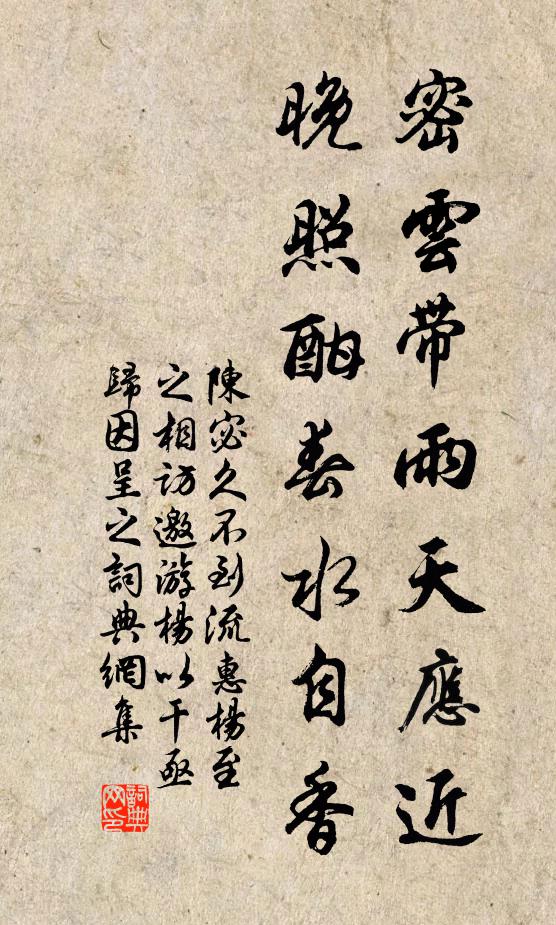 密雲帶雨天應近
晚照酣春水自香
陳宓久不到流惠楊至
之相訪邀游楊以干亟
歸因呈之詞典網集
詞典
网印